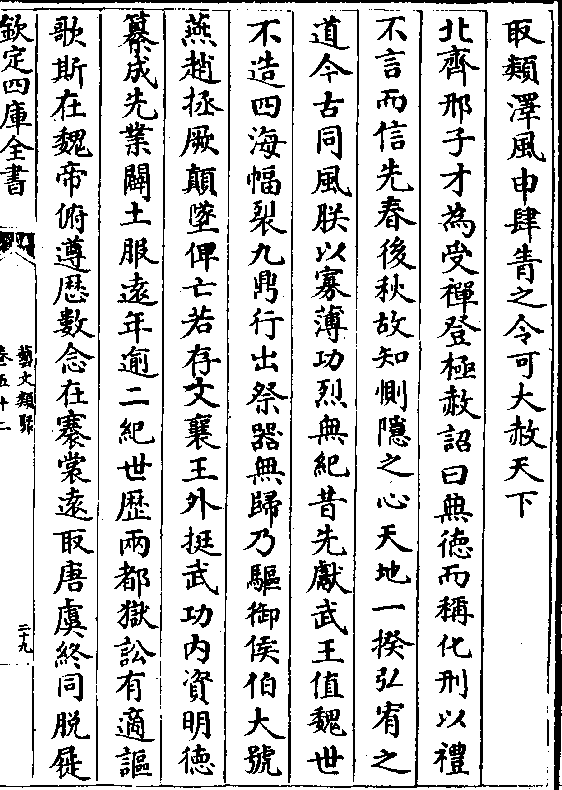 取類澤風申肆眚之令可大赦天下
北齊邢子才為受禪登極赦詔曰無德而稱化刑以禮
不言而信先春後秋故知惻隱之心天地一揆弘宥之
道今古同風朕以寡薄功烈無紀昔先獻武王值魏世
不造四海幅裂九鼎行出祭器無歸乃驅御侯伯大號
燕趙拯厥顛墜俾亡若存文襄王外挺武功内資明德
纂成先業闢土服逺年逾二紀世歴兩都獄訟有適謳
歌斯在魏帝俯遵歴數念在褰裳逺取唐虞終同脱屣
欽定四庫全書
藝文類聚
卷五十二
二十九